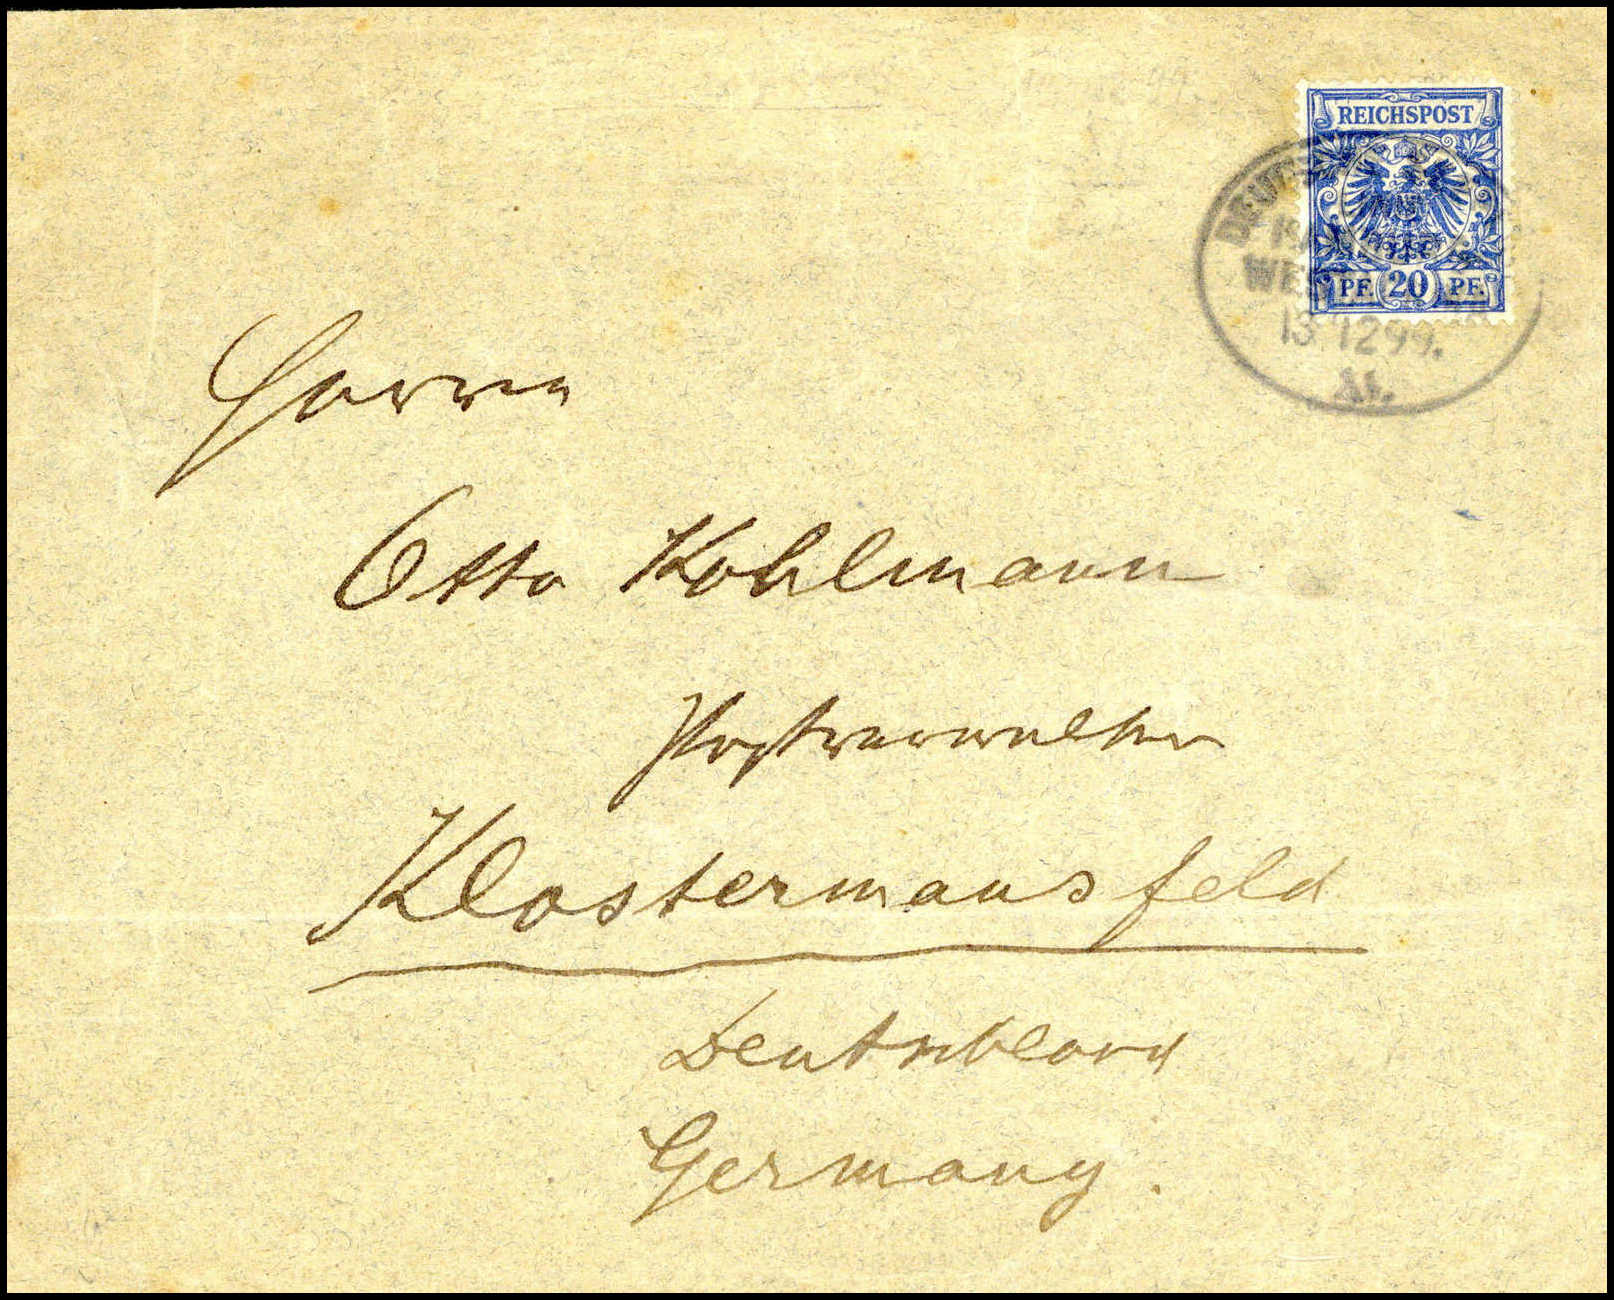 REICHSPOST
PF. 20 PF.
13 12 99.
Herrn
Otto Kohlmann
Postverwalter
Klostermansfeld
Deutschland
Germany.